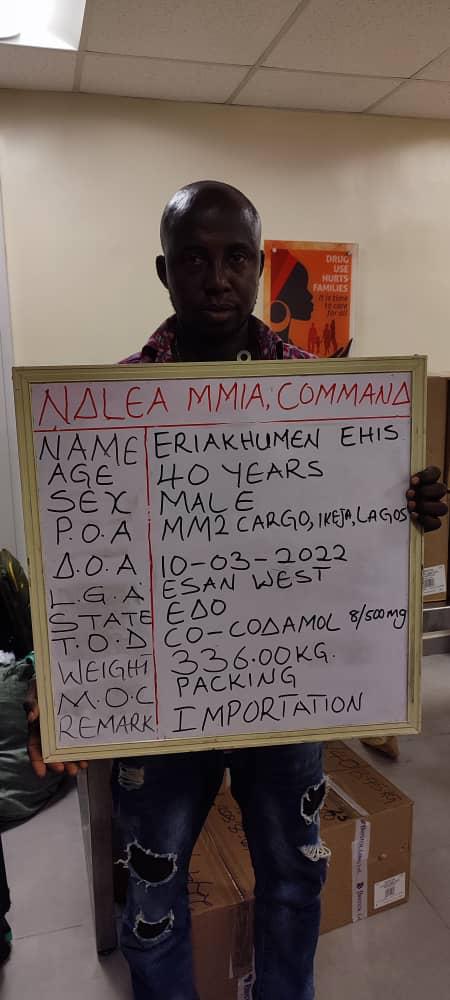 DRUG
USE
HURTS
FAMILIES
It is time
to care
for all
NDLEA MMIA, COMMAND
NAME ERIAKHUMEN EHIS
AGE 40 YEARS
SEX MALE
P.O.A MM2 CARGO, IKEJA, LAGOS
D.O.A 10-03-2022
L.G.A ESAN WEST
STATE EDO
T.O.D CO-CODAMOL 8/500mg
WEIGHT 336.00KG.
M.O.C PACKING
REMARK IMPORTATION